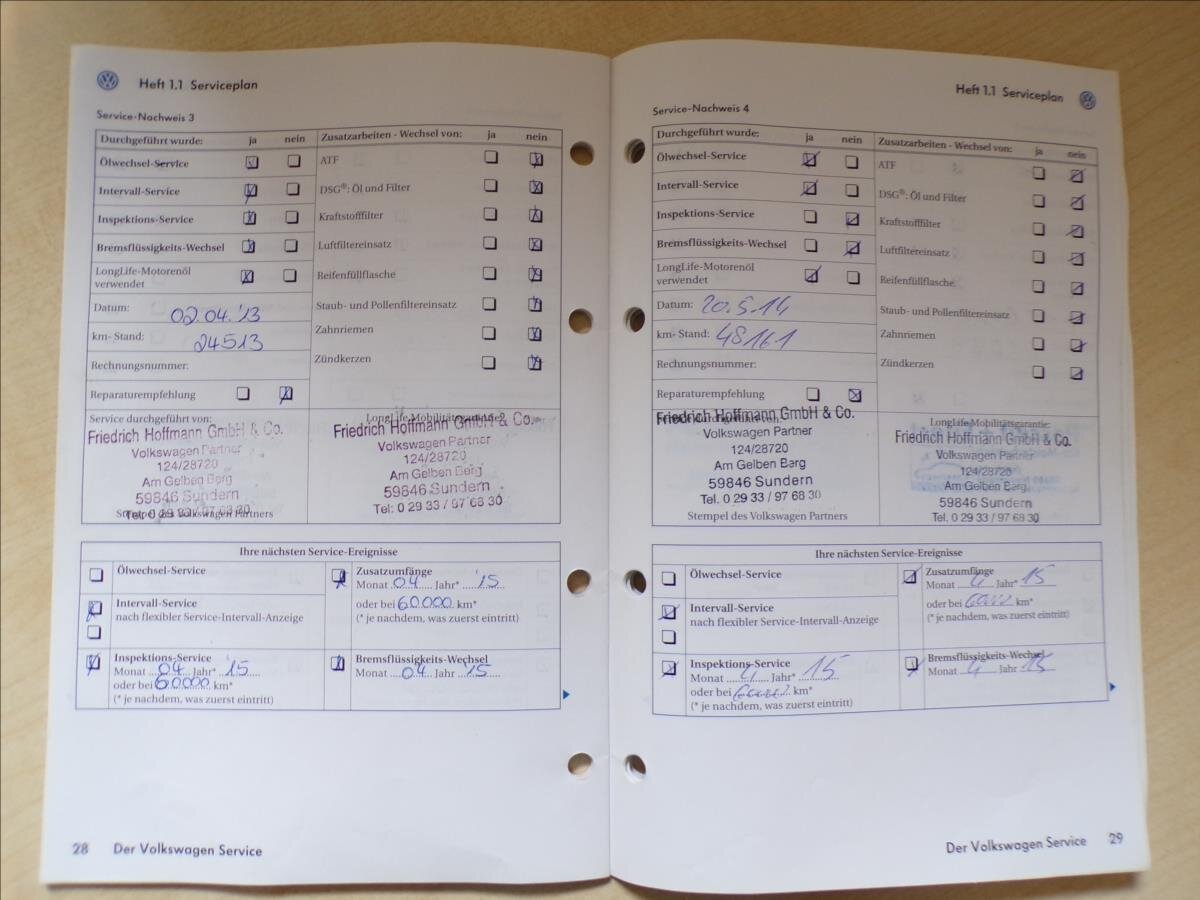 Heft 1.1 Serviceplan
Service-Nachweis 3
Durchgeführt wurde: ja nein
Ölwechsel-Service
Intervall-Service
Inspektions-Service
Bremsflüssigkeits-Wechsel
LongLife-Motorenöl
verwendet
Datum: 02.04.'13
km- Stand: 24513
Rechnungsnummer:
Reparaturempfehlung
Zusatzarbeiten - Wechsel von: ja nein
ATF
DSG®: Öl und Filter
Kraftstofffilter
Luftfiltereinsatz
Reifenfüllflasche
Staub- und Pollenfiltereinsatz
Zahnriemen
Zündkerzen
Service durchgeführt von:
Friedrich Hoffmann GmbH & Co.
Volkswagen Partner
124/28720
Am Gelben Berg
59846 Sundern
Tel: 0 29 33 / 97 68 30
Stempel des Volkswagen Partners
LongLife Mobilitätsgarantie:
Friedrich Hoffmann GmbH & Co.
Volkswagen Partner
124/28720
Am Gelben Berg
59846 Sundern
Tel: 0 29 33 / 97 68 30
Ihre nächsten Service-Ereignisse
Ölwechsel-Service
Intervall-Service
nach flexibler Service-Intervall-Anzeige
Inspektions-Service
Monat 04 Jahr* '15
oder bei 60.000 km*
(* je nachdem, was zuerst eintritt)
Zusatzumfänge
Monat 04 Jahr* '15
oder bei 60.000 km*
(* je nachdem, was zuerst eintritt)
Bremsflüssigkeits-Wechsel
Monat 04 Jahr '15
28 Der Volkswagen Service
Heft 1.1 Serviceplan
Service-Nachweis 4
Durchgeführt wurde: ja nein
Ölwechsel-Service
Intervall-Service
Inspektions-Service
Bremsflüssigkeits-Wechsel
LongLife-Motorenöl
verwendet
Datum: 20.5.14
km- Stand: 48161
Rechnungsnummer:
Reparaturempfehlung
Zusatzarbeiten - Wechsel von: ja nein
ATF
DSG®: Öl und Filter
Kraftstofffilter
Luftfiltereinsatz
Reifenfüllflasche
Staub- und Pollenfiltereinsatz
Zahnriemen
Zündkerzen
durchgeführt von:
Friedrich Hoffmann GmbH & Co.
Volkswagen Partner
124/28720
Am Gelben Berg
59846 Sundern
Tel. 0 29 33 / 97 68 30
Stempel des Volkswagen Partners
LongLife Mobilitätsgarantie:
Friedrich Hoffmann GmbH & Co.
Volkswagen Partner
124/28720
Am Gelben Berg
59846 Sundern
Tel. 0 29 33 / 97 68 30
Ihre nächsten Service-Ereignisse
Ölwechsel-Service
Intervall-Service
nach flexibler Service-Intervall-Anzeige
Inspektions-Service
Monat 4 Jahr* 15
oder bei km*
(* je nachdem, was zuerst eintritt)
Zusatzumfänge
Monat 4 Jahr* 15
oder bei km*
(* je nachdem, was zuerst eintritt)
Bremsflüssigkeits-Wechsel
Monat 4 Jahr 15
Der Volkswagen Service 29